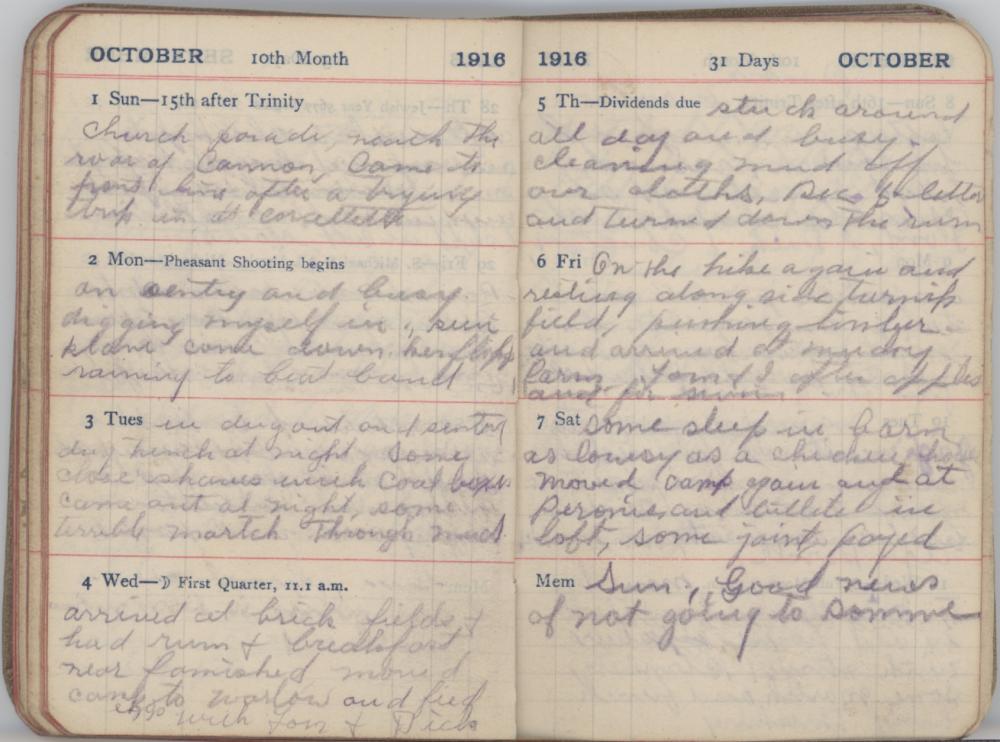 OCTOBER 10th Month 1916
1 Sun—15th after Trinity
Church parade, neath the
roar of Cannon, Came to
front line after a trying
trip in at Corcellette
2 Mon—Pheasant Shooting begins
on sentry and busy
digging myself in, seen
plane come down
raining to beat band
3 Tues in dugout and sentry
dug trench at night some
close shaves with Coal boxes
came out at night, some
terrible martch through mud
4 Wed—☽ First Quarter, 11.1 a.m.
arrived at brick fields &
had rum & breakfast,
near famished moved
camp to warlow and fied
eggs with Tom &
1916 31 Days OCTOBER
5 Th—Dividends due stuck around
all day and busy
cleaning mud off
our cloths, Rec 6 letters
and turned down the rum
6 Fri On the hike again and
resting along side turnip
field,
and arrived at
barn Tom & I
and for
7 Sat some sleep in barn
as lousy as a chicken house
moved camp again and at
and billets in
loft, some joint, payed
Mem Sun, Good news
of not going to Somme